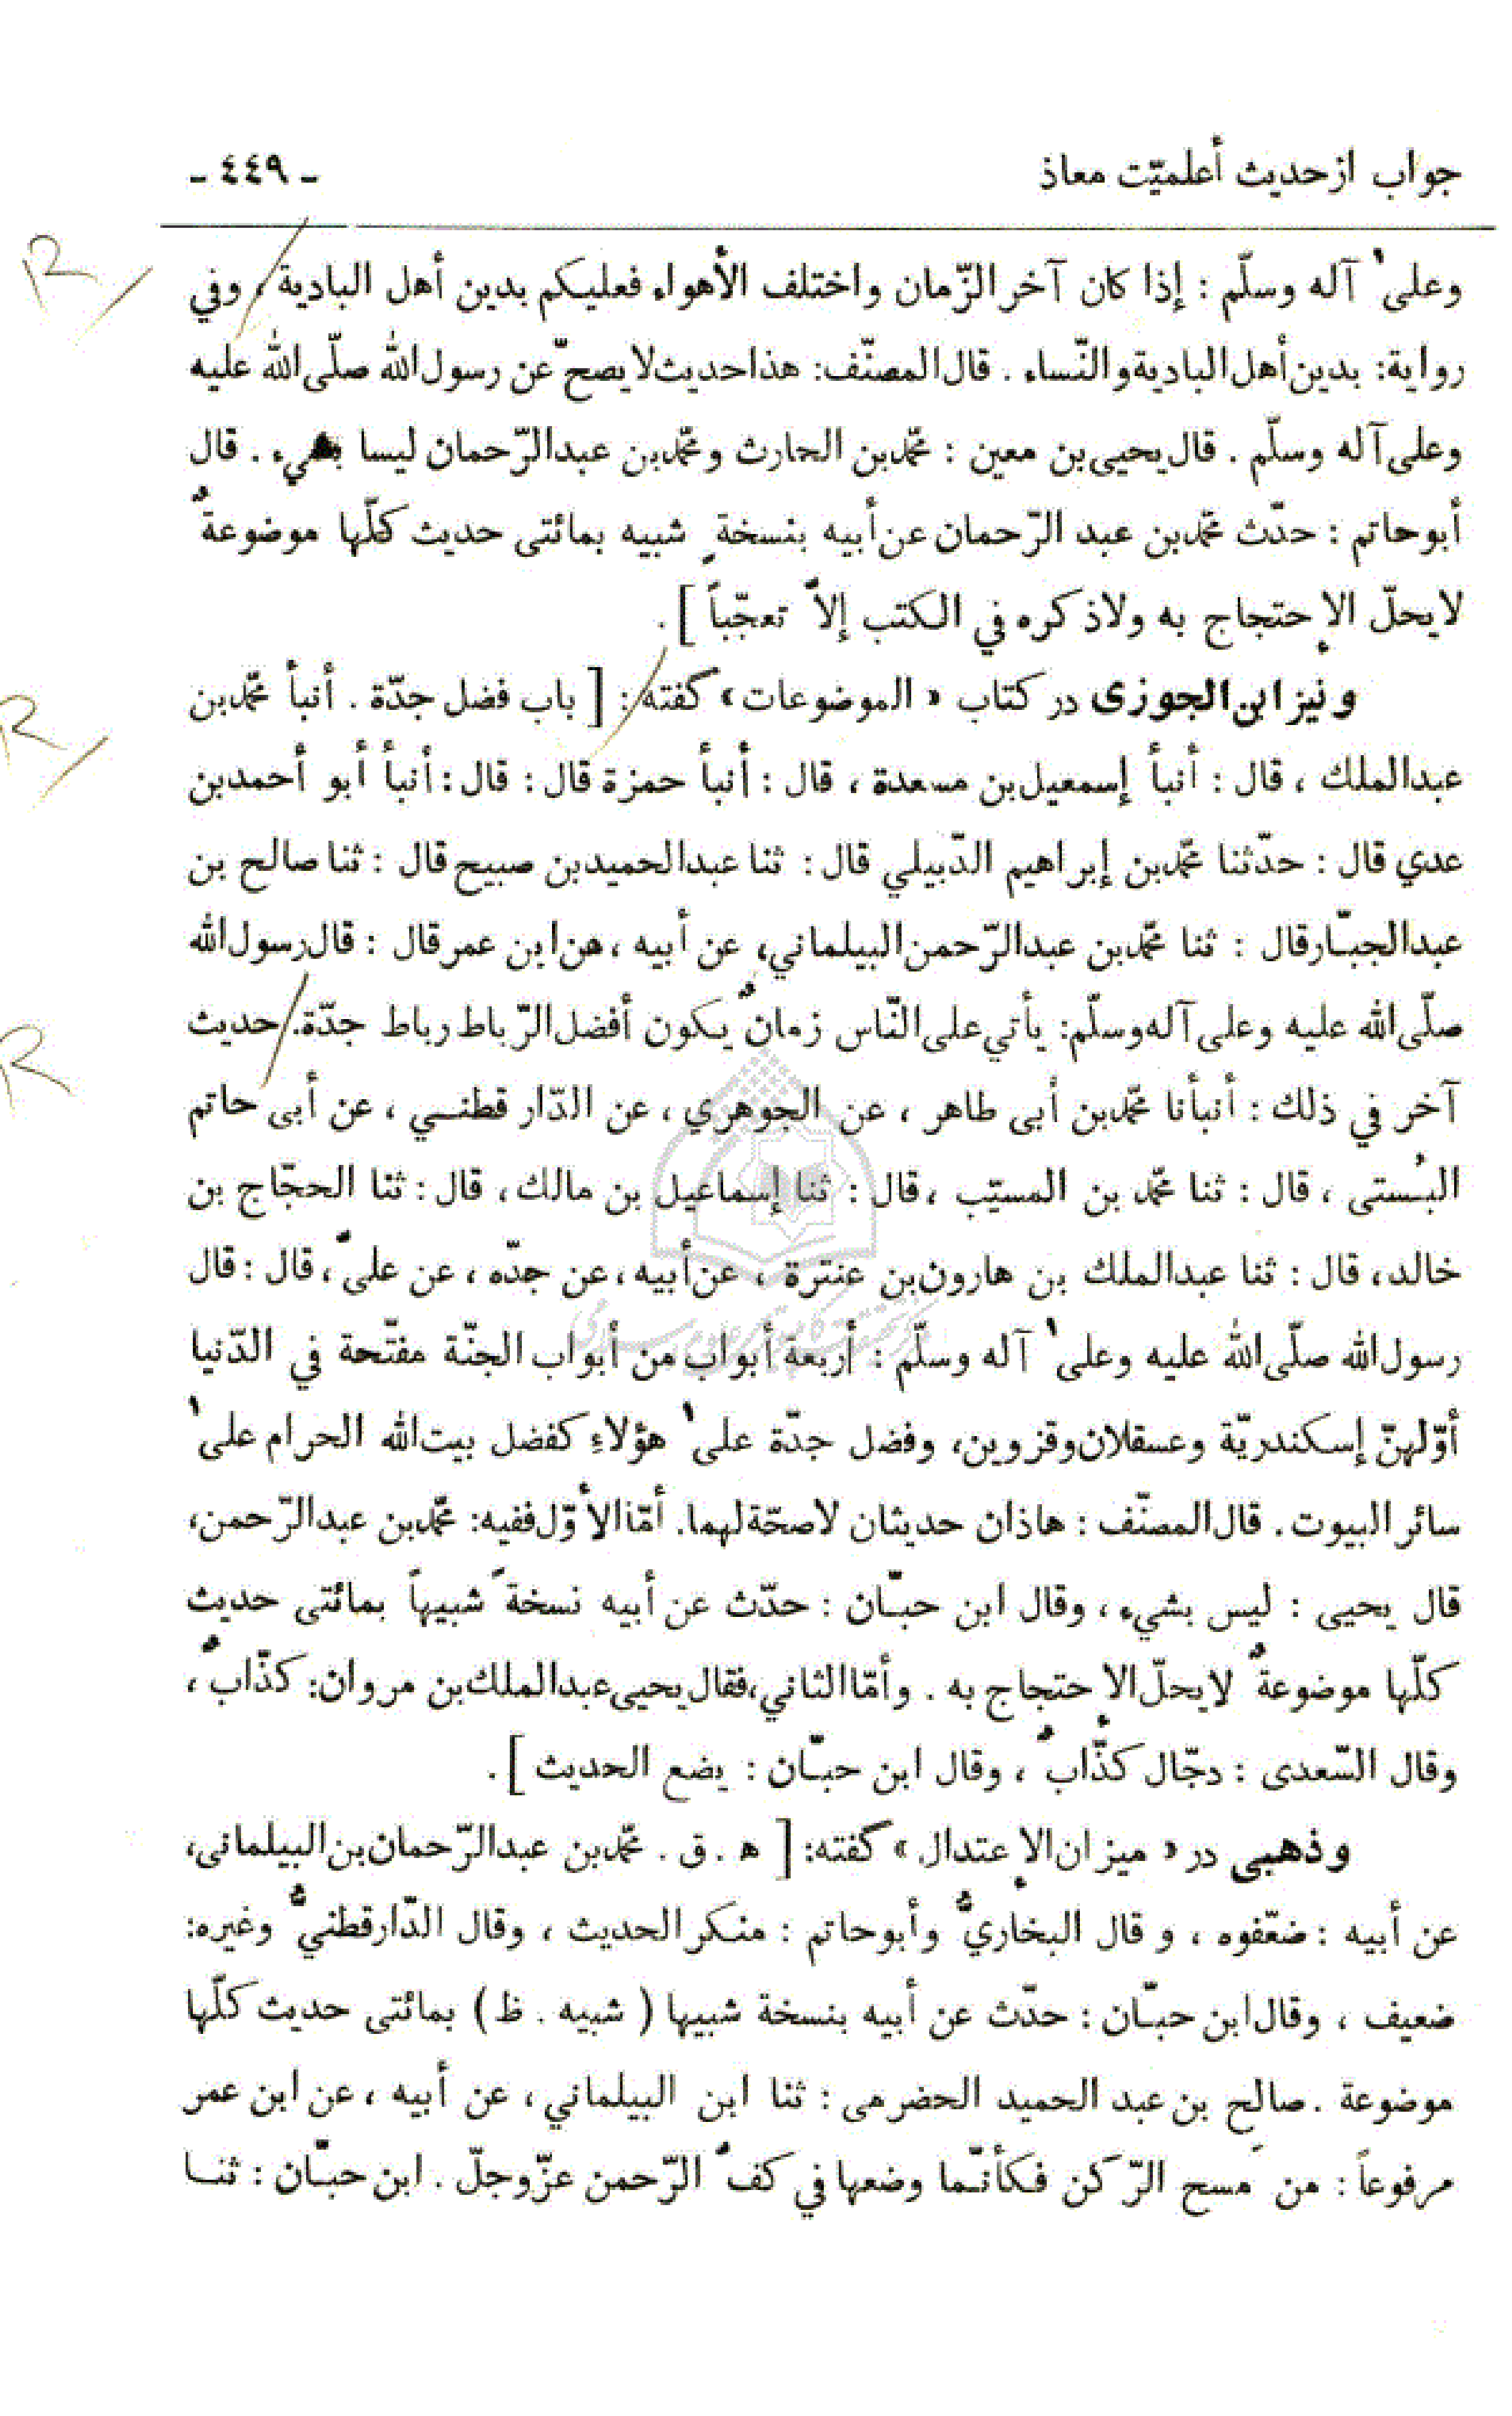 جواب از حديث أعلميّت معاذ
ـ ٤٤٩ ـ
وعلى آله وسلّم : إذا كان آخر الزّمان واختلف الأهواء فعليكم بدين أهل البادية ، وفي
رواية: بدين أهل البادية والنّساء . قال المصنّف: هذا حديث لا يصحّ عن رسول الله صلّى الله عليه
وعلى آله وسلّم . قال يحيى بن معين : محمّد بن الحارث ومحمّد بن عبد الرّحمان ليسا بشيء . قال
أبو حاتم : حدّث محمّد بن عبد الرّحمان عن أبيه بنسخةٍ شبيه بمائتى حديث كلّها موضوعةٌ
لا يحلّ الإحتجاج به ولا ذكره في الكتب إلاّ تعجّباً ] .
و نيز ابن الجوزى در كتاب « الموضوعات » گفته : [ باب فضل جدّة . أنبأ محمّد بن
عبد الملك ، قال : أنبأ إسمعيل بن مسعدة ، قال : أنبأ حمزة قال : قال : أنبأ أبو أحمد بن
عدي قال : حدّثنا محمّد بن إبراهيم الدّبيلي قال : ثنا عبد الحميد بن صبيح قال : ثنا صالح بن
عبد الجبّار قال : ثنا محمّد بن عبد الرّحمن البيلماني، عن أبيه ، عن ابن عمر قال : قال رسول الله
صلّى الله عليه وعلى آله وسلّم: يأتي على النّاس زمانٌ يكون أفضل الرّباط رباط جدّة. حديث
آخر في ذلك : أنبأنا محمّد بن أبى طاهر ، عن الجوهري ، عن الدّار قطنـي ، عن أبى حاتم
البُستى ، قال : ثنا محمّد بن المسيّب ، قال : ثنا إسماعيل بن مالك ، قال : ثنا الحجّاج بن
خالد، قال : ثنا عبد الملك بن هارون بن عنترة ، عن أبيه ، عن جدّه ، عن علىّ ، قال : قال
رسول الله صلّى الله عليه وعلى آله وسلّم : أربعة أبواب من أبواب الجنّة مفتّحة في الدّنيا
أوّلهنّ إسكندريّة وعسقلان وقزوين، وفضل جدّة على هؤلاءِ كفضل بيت الله الحرام على
سائر البيوت . قال المصنّف : هاذان حديثان لا صحّة لهما. أمّا الأوّل ففيه: محمّد بن عبد الرّحمن،
قال يحيى : ليس بشيء ، وقال ابن حبّان : حدّث عن أبيه نسخةً شبيهاً بمائتى حديث
كلّها موضوعةٌ لا يحلّ الإحتجاج به . وأمّا الثاني، فقال يحيى عبد الملك بن مروان: كذّابٌ ،
وقال السّعدى : دجّال كذّابٌ ، وقال ابن حبّان : يضع الحديث ] .
و ذهبى در « ميزان الإعتدال » گفته: [ ه . ق . محمّد بن عبد الرّحمان بن البيلمانى،
عن أبيه : ضعّفوه ، و قال البخاريُّ وأبو حاتم : منكر الحديث ، وقال الدّارقطنيُّ وغيره:
ضعيف ، وقال ابن حبّان : حدّث عن أبيه بنسخة شبيها ( شبيه . ظ ) بمائتى حديث كلّها
موضوعة . صالح بن عبد الحميد الحضرمى : ثنا ابن البيلماني ، عن أبيه ، عن ابن عمر
مرفوعاً : من مسح الرّكن فكأنّما وضعها في كفّ الرّحمن عزّ وجلّ . ابن حبّان : ثنا